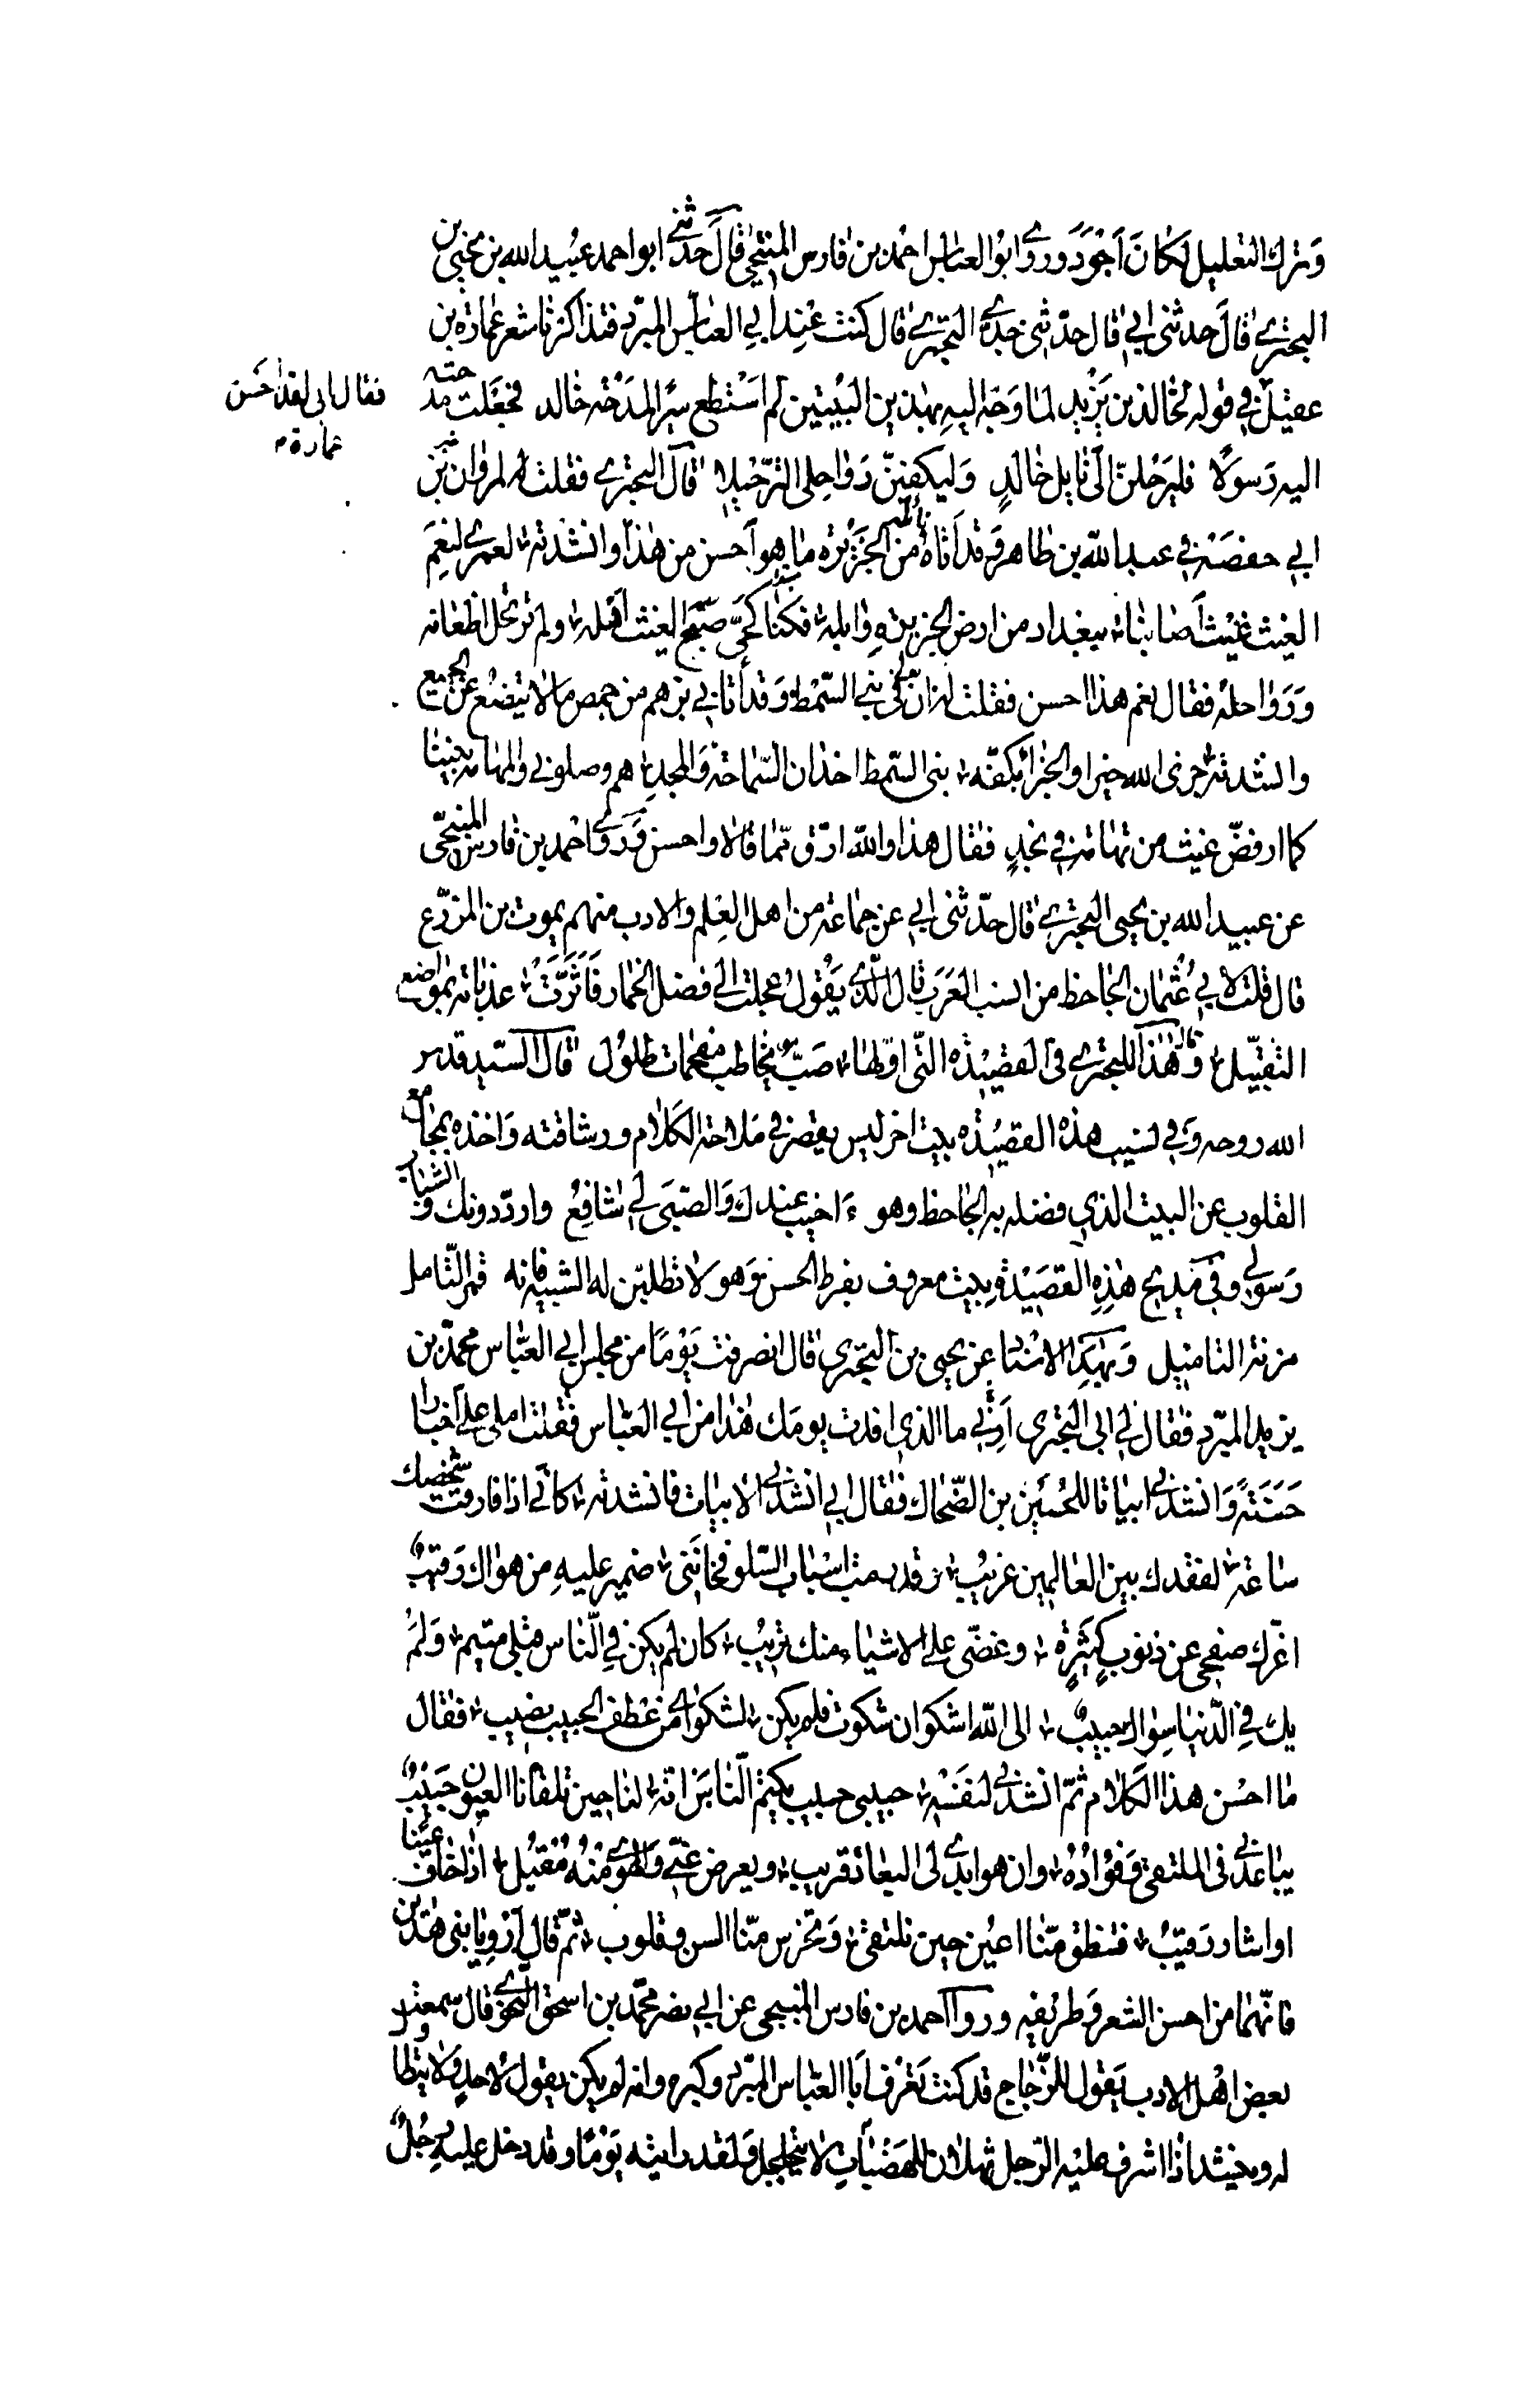 وترك التعليل لكان أجود وروى ابو العباس احمد بن فارس المنبجي قال حدثني ابو احمد عبيد الله بن يحيى بن
البحتري قال حدثني ابي قال حدثني جدي البحتري قال كنت عند ابي العباس المبرد فتذاكرنا شعر عمارة بن
عقيل في قوله لخالد بن يزيد لما وجه اليه بهذين البيتين لم استطع سيرا لمدحة خالد فجعلت مدحته
فقال لي لقد احسن
عمارة
اليه رسولا فليرحلن الى نايل خالد وليكفين رواحلي الترحيلا قال البحتري فقلت له لمروان بن
ابي حفصة في عبد الله بن طاهر وقد أتاه نائله من الجزيرة ما هو أحسن من هذا وانشدته لعمري لنعم
الغيث غيث أصابنا ببغداد من ارض الجزيرة وابله فكنا كحي صبح الغيث اهله ولم ترتحل اظعانه
ورواحله فقال نعم هذا احسن فقلت له ان لي في بني السمط وقد أتاني برهم من حمص ما لا يتضع عن الجميع
وانشدته جزى الله خيرا والجزاء بكفه بني السمط اخدان السماحة والمجد هم وصلوني والمهامه بيننا
كما ارفض غيث من تهامة في نجد فقال هذا والله ارق مما قالا واحسن وروى احمد بن فارس المنبجي
عن عبيد الله بن يحيى البحتري قال حدثني ابي عن جماعة من اهل العلم والادب منهم يموت بن المزرع
قال قلت لابي عثمان الجاحظ من انسب العرب قال الذي يقول عجلت الى فضل الخمار فأثرت عذباته بمواضع
التقبيل قال وهذا للبحتري في القصيدة التي اولها صب يخاطب مفحمات طلول قال السيد قدس
الله روحه وفي نسيب هذه القصيدة بيت اخر ليس يقصر في ملاحة الكلام ورشاقته واخذه بمجامع
القلوب عن البيت الذي فضله به الجاحظ وهو ءاخيب عندك والصبى لي شافع وارد دونك والشباب
رسولي وفي مديح هذه القصيدة بيت معروف بفرط الحسن وهو لا تطلبن له الشبيه فانه قمر التامل
مزنة التاميل وبهذا الاسناد عن يحيى بن البحتري قال انصرفت يوما من مجلس ابي العباس محمد بن
يزيد المبرد فقال لي ابي البحتري ما الذي افدت يومك هذا من ابي العباس فقلت املى علي أخبارا
حسنة وانشدني ابياتا للحسين بن الضحاك فقال ابي انشدني الابيات فانشدته كاني اذا فارقت شخصك
ساعة لفقدك بين العالمين غريب وقد رمت اسباب السلو فخانني ضمير عليه من هواك رقيب
اغرك صفحي عن ذنوب كثيرة وغضي على الاشياء منك تريب كان لم يكن في الناس مثلي متيم ولم
يك في الدنيا سواك حبيب الى الله اشكو ان شكوت فلم يكن لشكواي من عطف الحبيب نصيب فقال
ما احسن هذا الكلام ثم انشدني لنفسه حبيبي حبيب يكتم الناس انه لنا حين تلقانا العيون حبيب
يباعدني في الملتقى وفؤاده وان هو ابدى لي البعاد قريب ويعرض عني والهوى منه مقبل اذا خاف عينا
او اشار رقيب فتنطق منا اعين حين نلتقي وتخرس منا السن وقلوب ثم قال ارو يا بني هذين
فانهما من احسن الشعر وطريفه وروى احمد بن فارس المنبجي عن ابي نصر محمد بن اسحق النحوي قال سمعت
بعض اهل الادب يقول للزجاج قد كنت تعرف ابا العباس المبرد وكبره وانه لم يكن يقول لاحد ولا يتطاول
له وينشد اذا اشرف عليه الرجل ثهلان ذو الهضبات لا يتحلحل ولقد رايته يوما وقد دخل عليه رجل